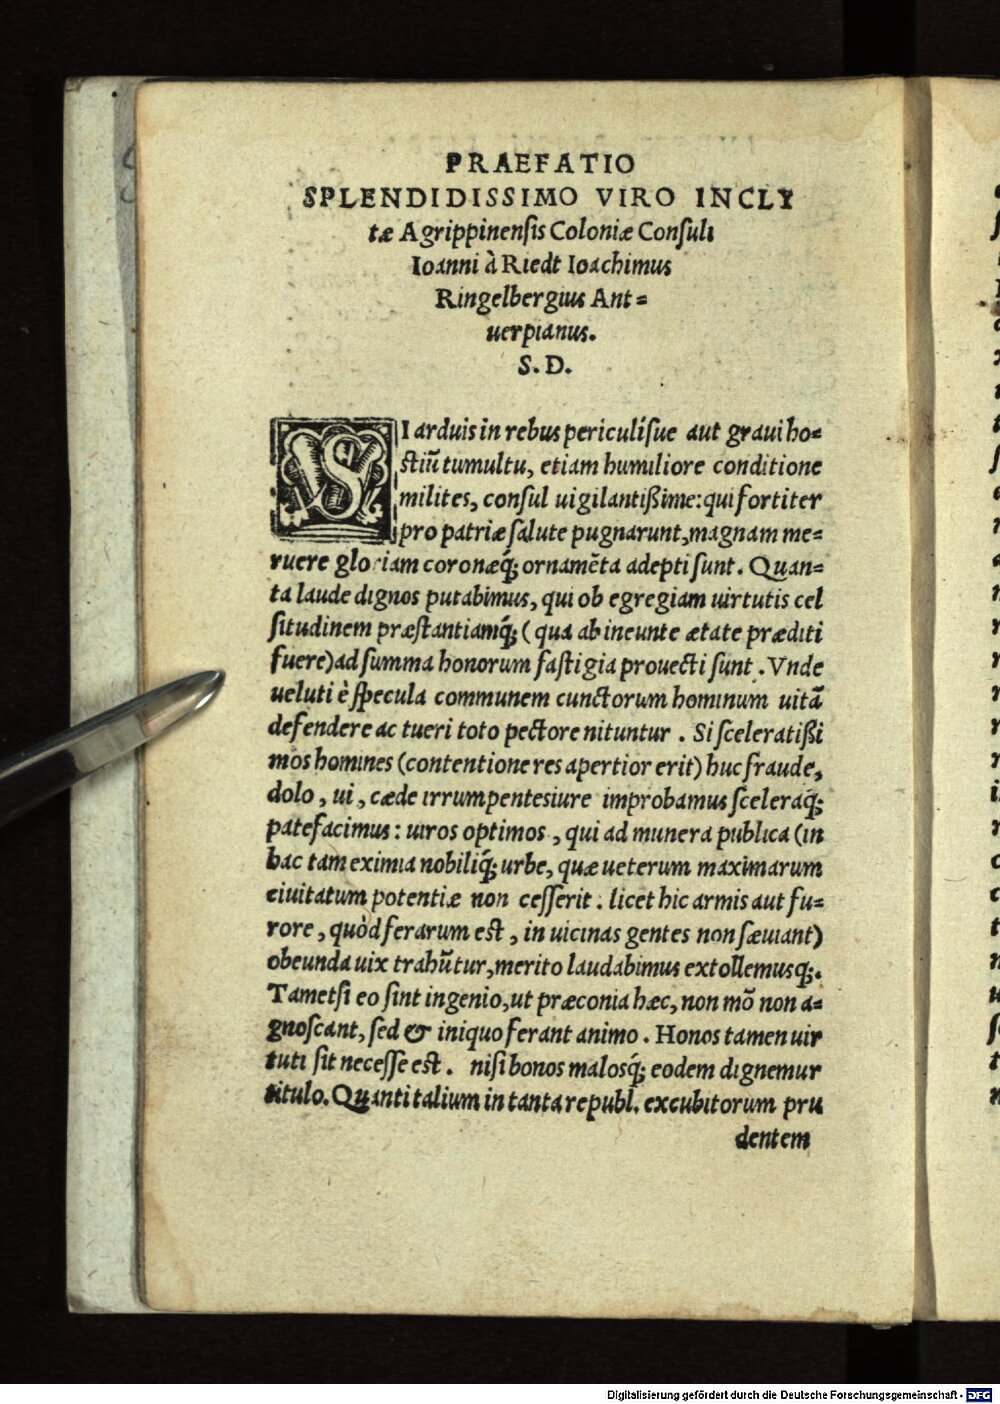 PRAEFATIO
SPLENDIDISSIMO VIRO INCLY
tæ Agrippinensis Coloniæ Consuli
Ioanni à Riedt Ioachimus
Ringelbergius Ant=
uerpianus.
S. D.
SI arduis in rebus periculisue aut graui ho=
stiū tumultu, etiam humiliore conditione
milites, consul uigilantißime: qui fortiter
pro patriæ salute pugnarunt, magnam me=
ruere gloriam coronæq́; ornamēta adepti sunt. Quan=
ta laude dignos putabimus, qui ob egregiam uirtutis cel
situdinem præstantiamq́; ( qua ab ineunte ætate præditi
fuere) ad summa honorum fastigia prouecti sunt. Vnde
ueluti è specula communem cunctorum hominum uitã
defendere ac tueri toto pectore nituntur. Si sceleratißi
mos homines (contentione res apertior erit) huc fraude,
dolo, ui, cæde irrumpentes iure improbamus sceleraq́;
patefacimus: uiros optimos, qui ad munera publica (in
hac tam eximia nobiliq́; urbe, quæ ueterum maximarum
ciuitatum potentiæ non cesserit. licet hic armis aut fu=
rore, quòd ferarum est, in uicinas gentes non sæuiant)
obeunda uix trahūtur, merito laudabimus extollemusq́;.
Tametsi eo sint ingenio, ut præconia hæc, non mõ non a=
gnoscant, sed & iniquo ferant animo. Honos tamen uir
tuti sit necesse est. nisi bonos malosq́; eodem dignemur
titulo. Quanti talium in tanta republ. excubitorum pru
dentem
Digitalisierung gefördert durch die Deutsche Forschungsgemeinschaft - DFG